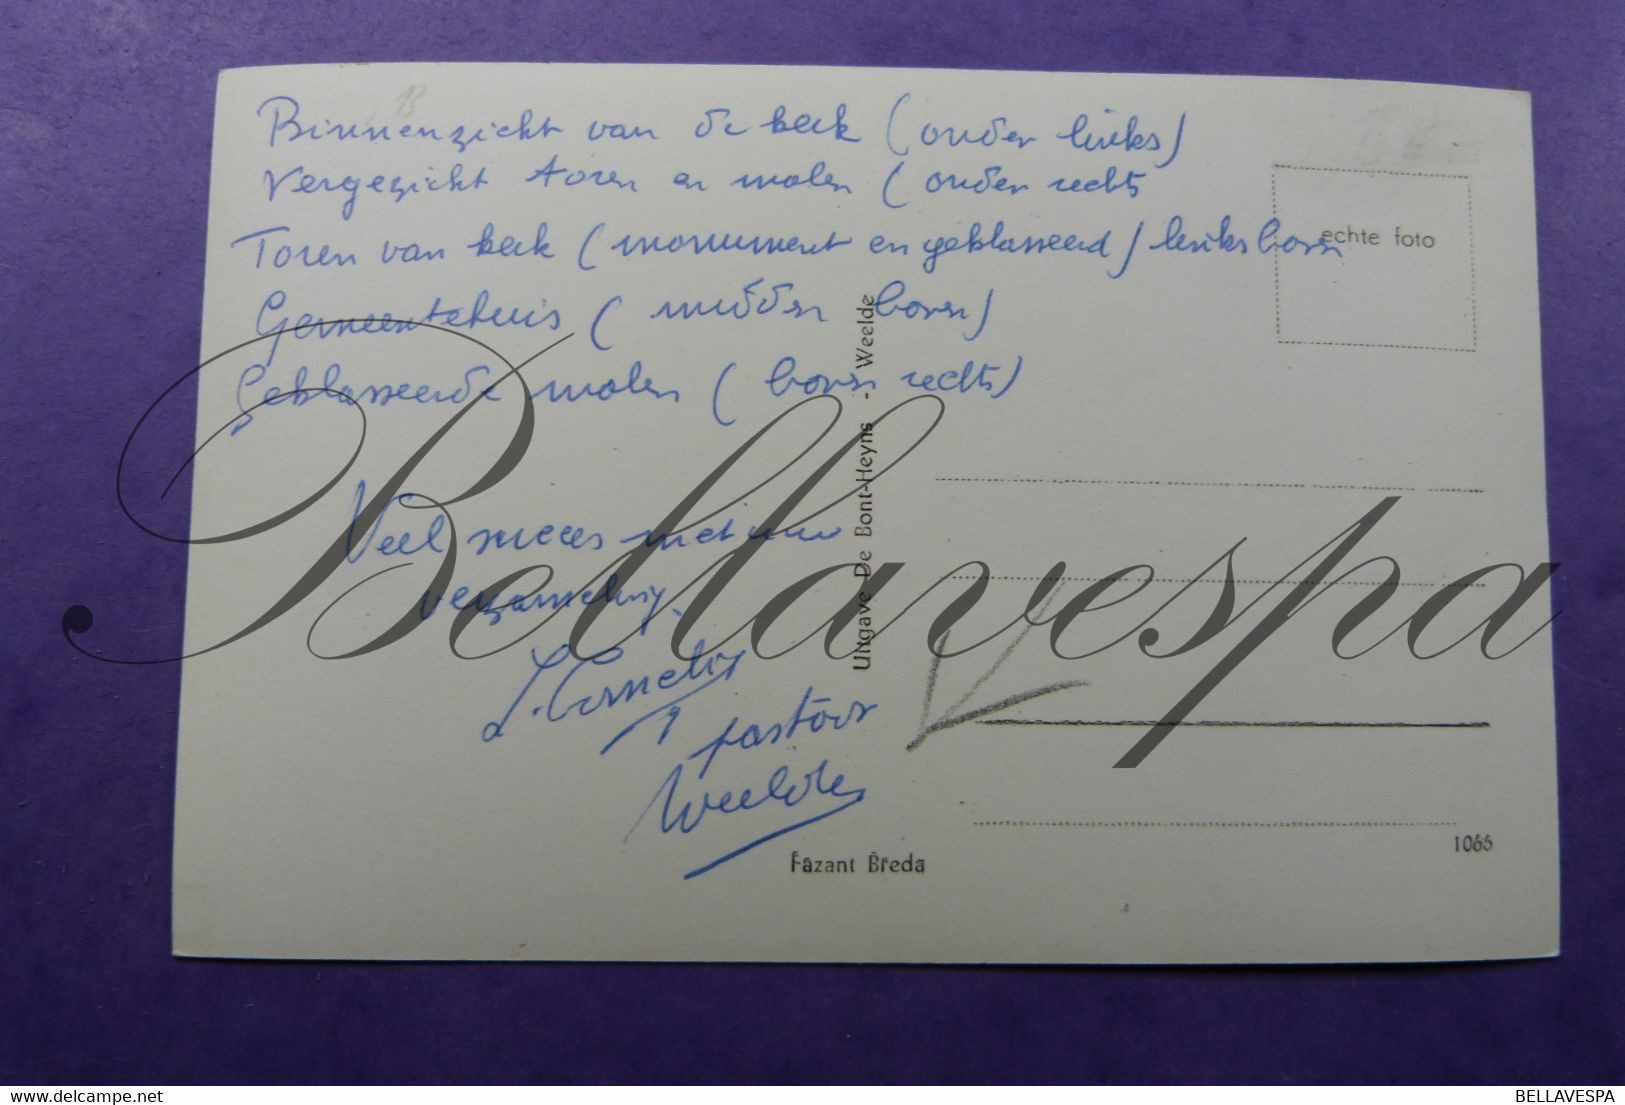 Binnenzicht van de kerk (onder links)
Vergezicht toren en molen (onder rechts
Toren van kerk (monument en geklasseerd) links boven
Gemeentehuis (midden boven)
Geklasseerde molen (boven rechts)
Veel succes met uw
verzameling.
pastoor
Weelde
echte foto
Uitgave De Bont-Heyns - Weelde
Fazant Breda
1066
Bellavespa
BELLAVESPA